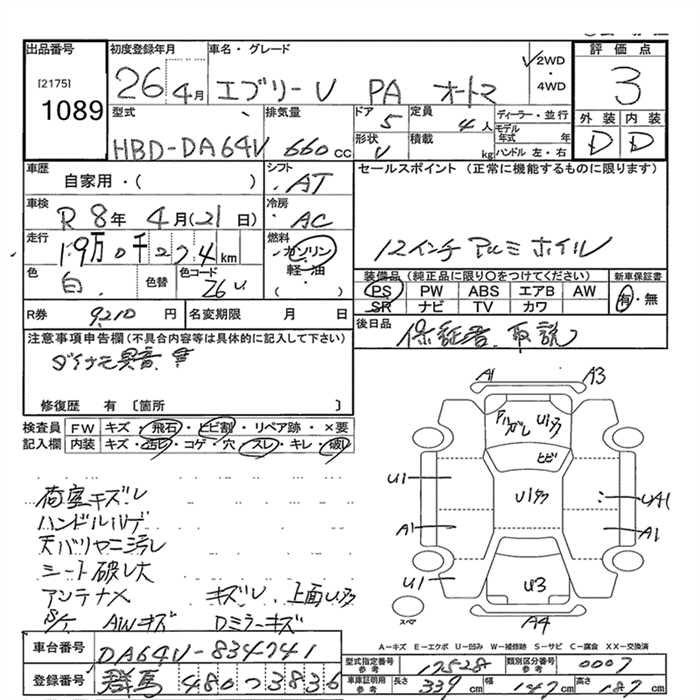 出品番号
[2175]
1089
初度登録年月
26 4月
車名・グレード
エブリーV PA オートマ
2WD
・
4WD
評価点
3
型式
HBD-DA64V
排気量
660 cc
ドア
5
定員
4 人
形状
V
積載
kg
ディーラー・並行
モデル年式 年
ハンドル 左・右
外装 内装
D D
車歴
自家用・( )
シフト
AT
セールスポイント (正常に機能するものに限ります)
12インチ アルミホイル
車検
R 8年 4月(21日)
冷房
AC
走行
1.9万0千274km
燃料
ガソリン
軽油
( )
色
白
色替
色コード
26U
装備品(純正品に限り○をつけてください)
PS PW ABS エアB AW
SR ナビ TV カワ
新車保証書
有・無
R券
9210 円
名変期限 月 日
後日品
保証書、取説
注意事項申告欄(不具合内容等は具体的に記入して下さい)
ダイナモ異音 等
修復歴 有 〔箇所 〕
検査員
記入欄
FW キズ・飛石・ヒビ割・リペア跡・×要
内装 キズ・汚レ・コゲ・穴・スレ・キレ・破レ
荷室キズレ
ハンドルハゲ
天バリヤニ汚レ
シート破レ大
アンテナX キズレ、上面U多
S/T AWキズ Dミラーキズ
A1 A3
ハガレ U1多
ヒビ
U1 U1多 UA1
A1 A1
U1 U3
A4
スペア
車台番号
DA64V-834741
登録番号
群馬 480 つ 3836
A=キズ E=エクボ U=凹み W=補修跡 S=サビ C=腐食 XX=交換済
型式指定番号
参考
17528
類別区分番号
参考
0007
車庫証明用
参考
長さ 339 cm 幅 147 cm 高さ 187 cm